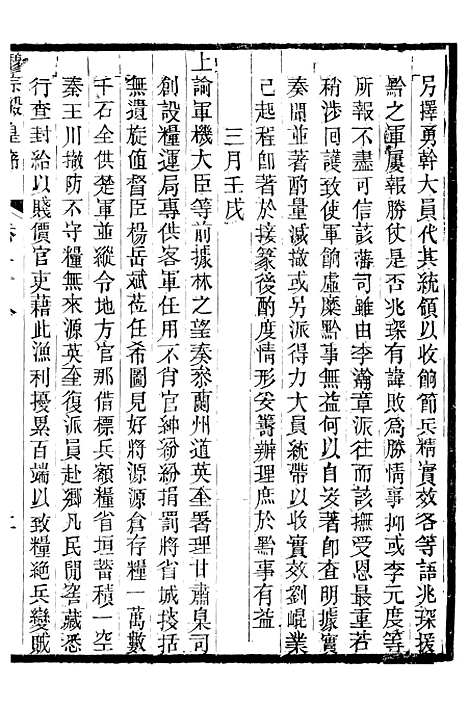 另擇勇幹大員代其統領以收節餉兵精實效各等語兆琛援
黔之軍屢報勝仗是否兆琛有諱敗為勝情事抑或李元度等
所報不盡可信該藩司雖由李瀚章派往而該撫受恩最重若
稍涉囘護致使軍餉虛糜黔事無益何以自安著即查明據實
奏聞並著酌量減撤或另派得力大員統帶以收實效劉崐業
已起程即著於接篆後酌度情形妥籌辦理庶於黔事有益
三月壬戌
上諭軍機大臣等前據林之望奏叅蘭州道英奎署理甘肅臬司
創設糧運局專供客軍任用不肖官紳紛紛捐罰將省城搜括
無遺旋值督臣楊岳斌莅任希圖見好將源源倉存糧一萬數
千石全供楚軍並縱令地方官那借標兵額糧省垣蓄積一空
秦王川撤防不守糧無來源英奎復派員赴鄉凡民間窖藏悉
行查封給以賤價官吏藉此漁利擾累百端以致糧絕兵變賊